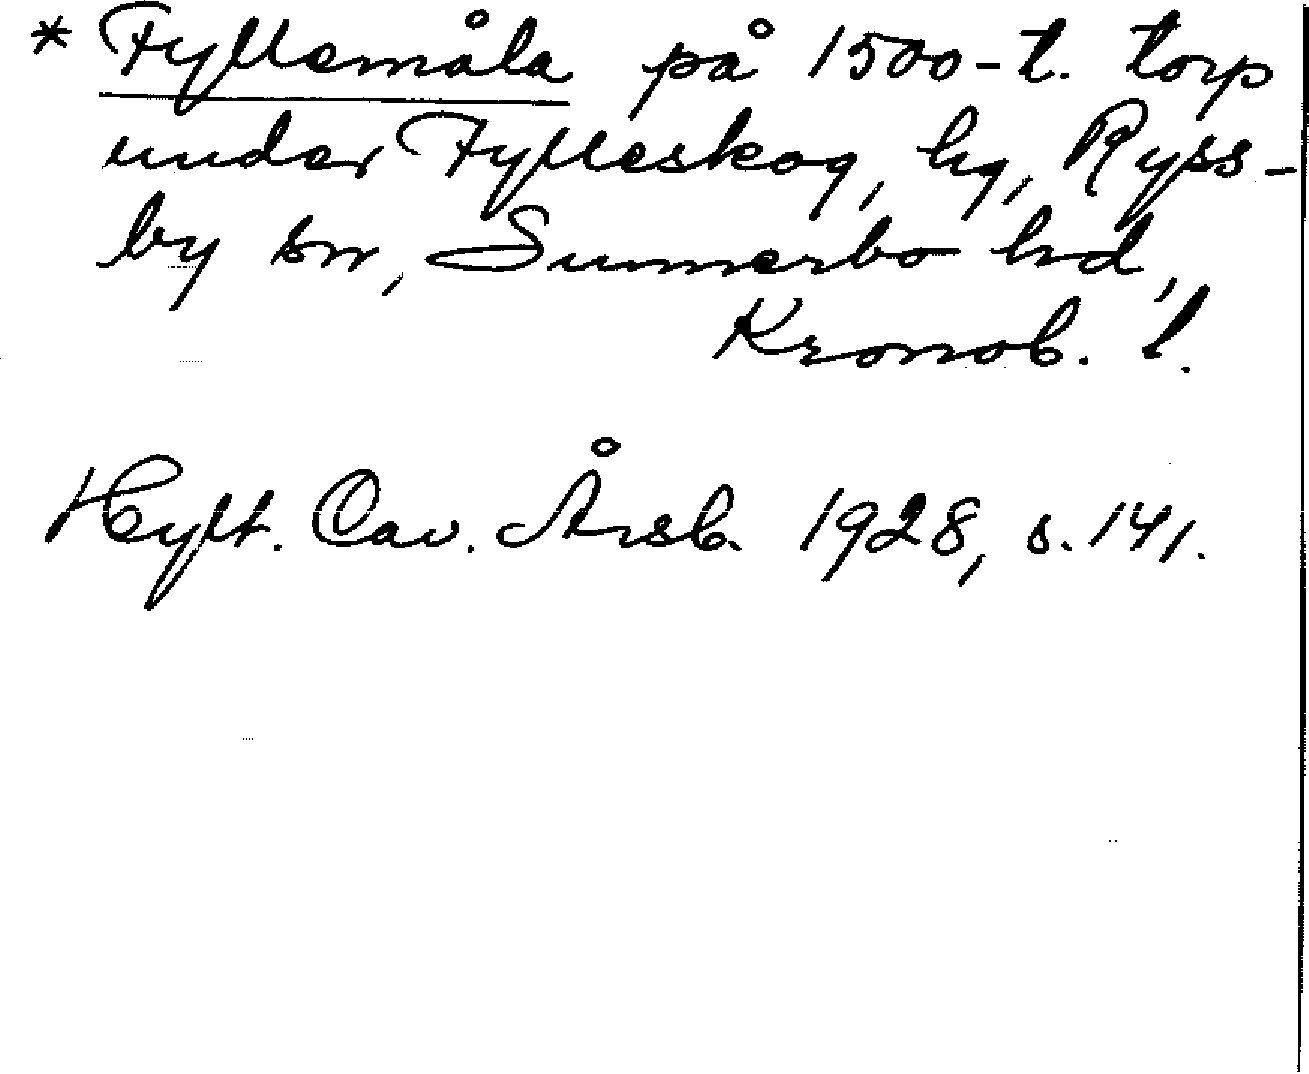 * Fyllemåla på 1500-t. torp
under Fylleskog, hg, Ryss-
by sn, Sunnerbo hd,
Kronob. l.
Hylt. Cav. Årsb. 1928, s. 141.